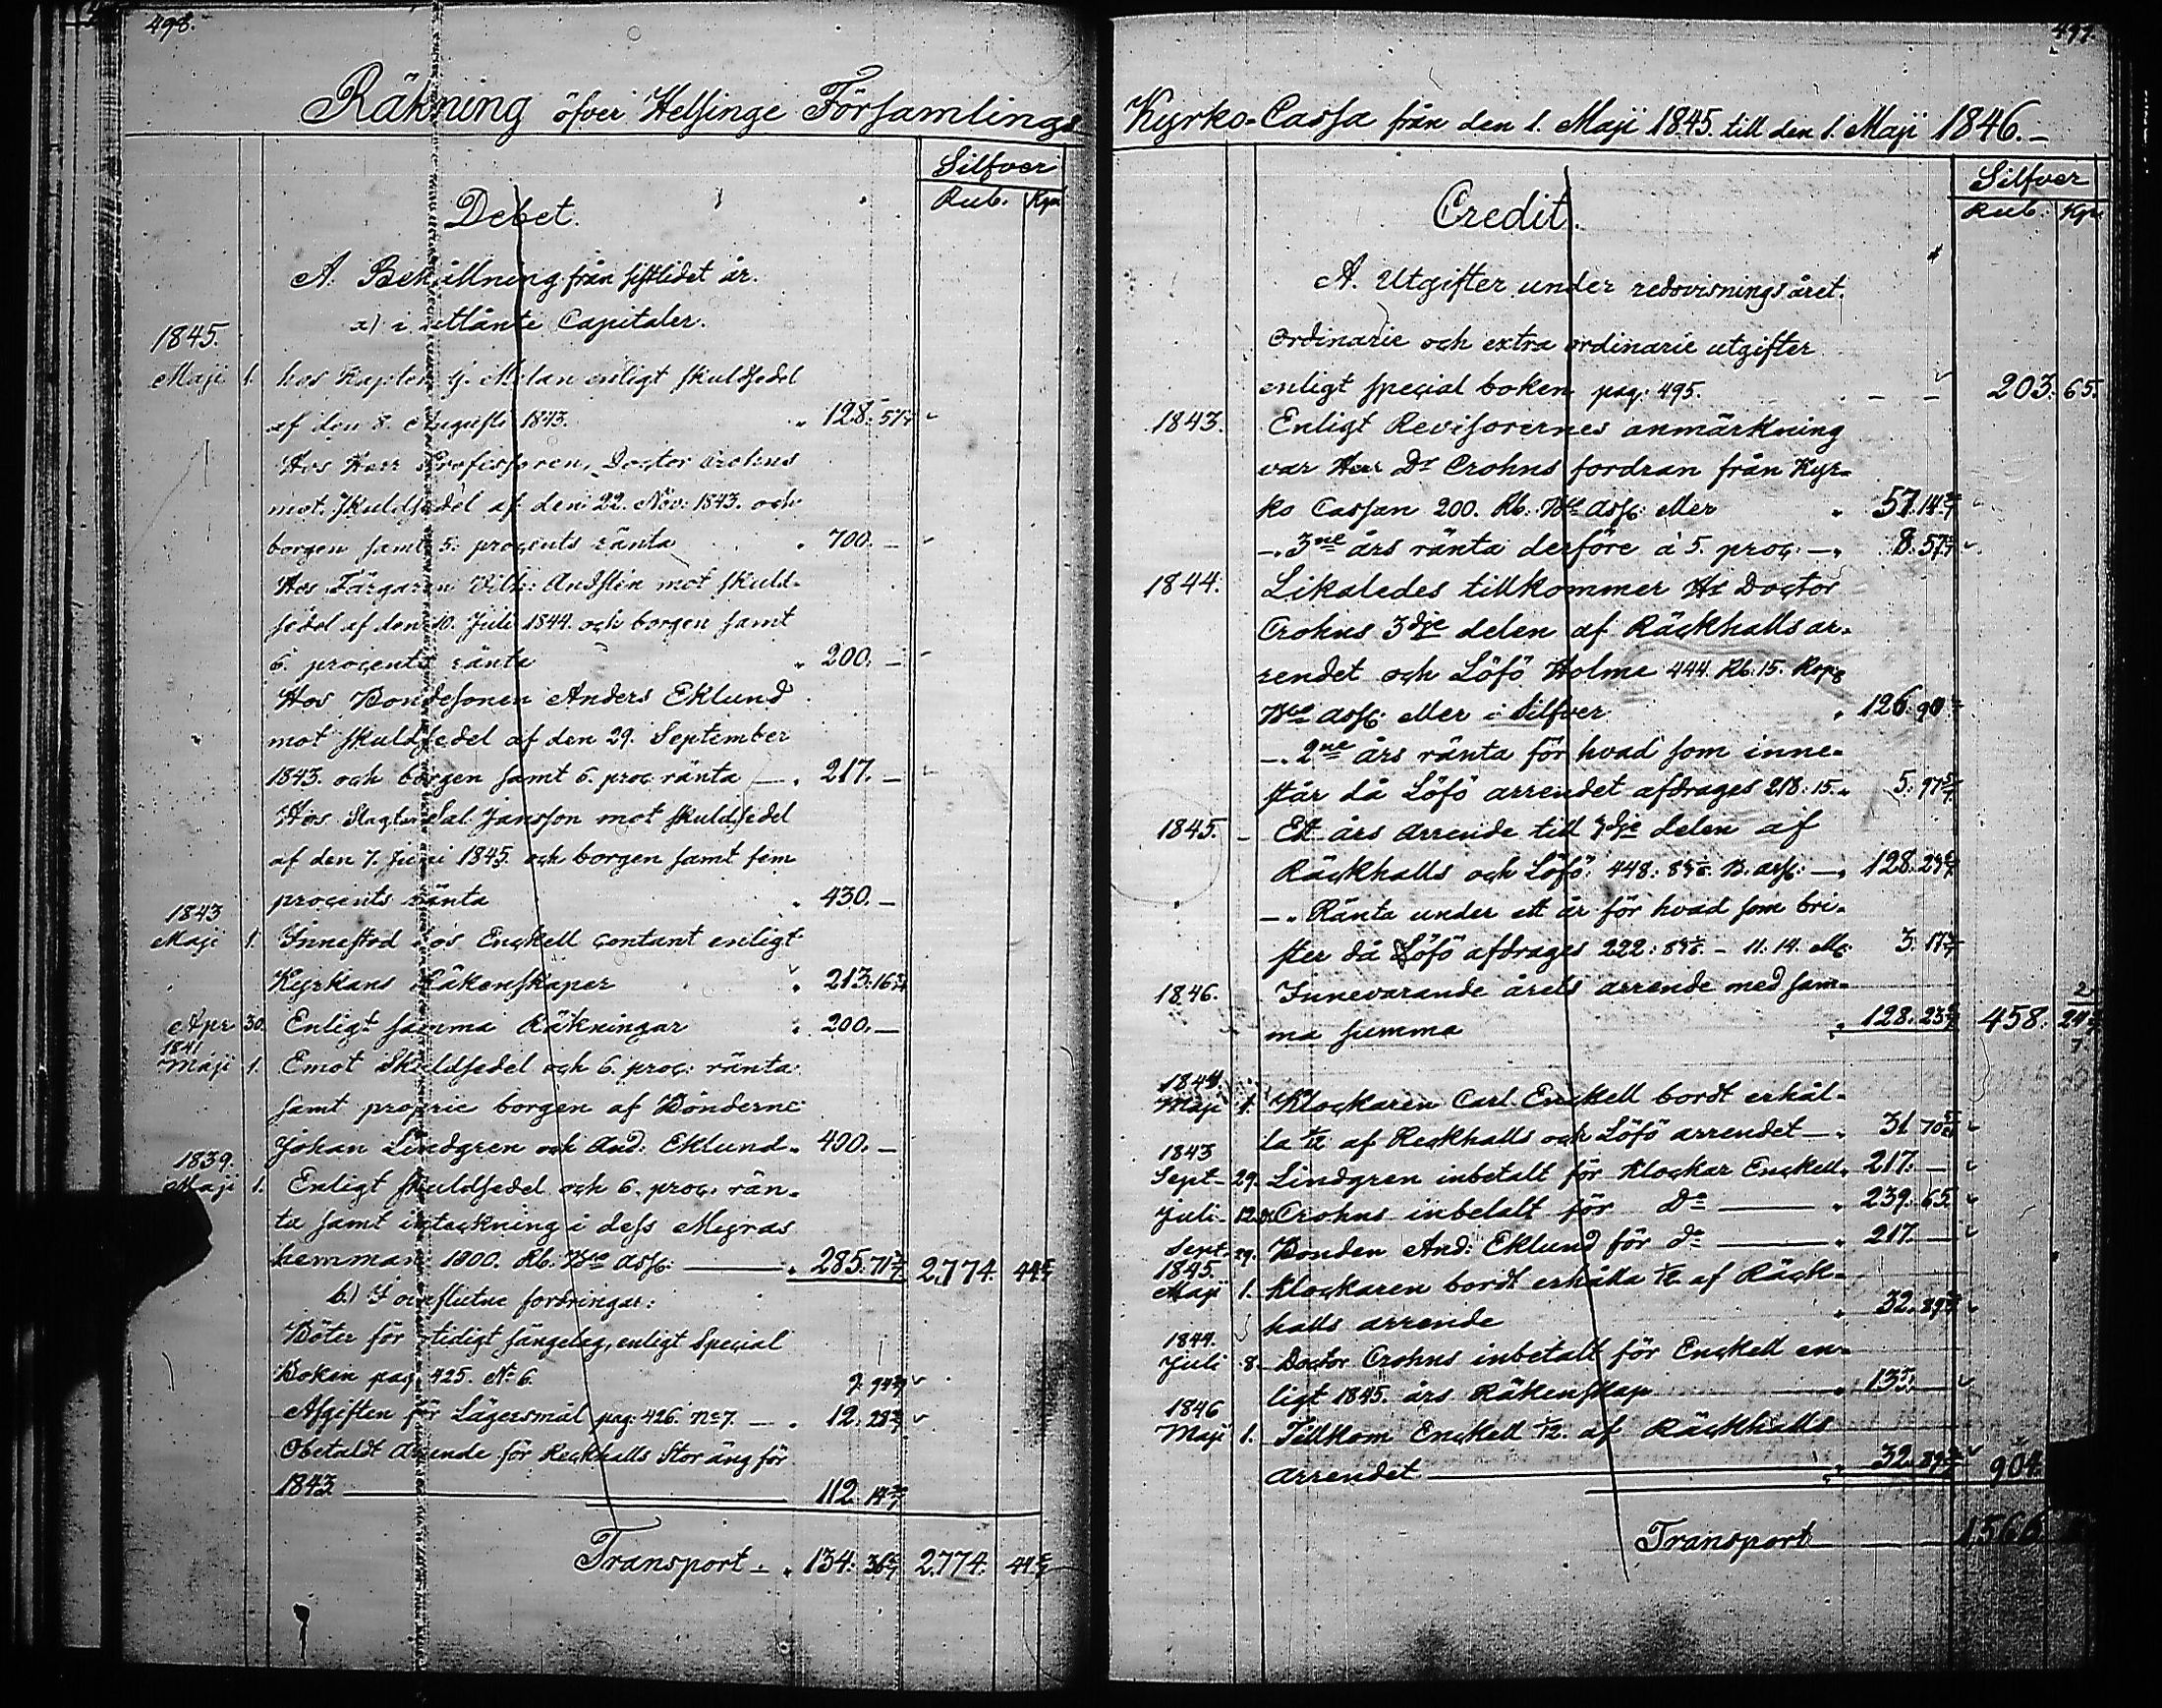 498.
Räkning öfver Helsinge Församlings
Silfver
Rub. Kpk
Debet.
A. Behållning från sistlidet år.
a) i utlånte Capitaler.
1845.
Maji 1. hos Kapten G. Melan enligt skuldsedel
af den 8. Augusti 1843. " 128. 57 1/7
Hos Herr Professoren, Doctor Crohns
mot skuldsedel af den 22. Nov: 1843. och
borgen samt 5. procents ränta " 700. —
Hos Färgaren Vilh: Andstén mot skuld-
sedel af den 10. Juli 1844. och borgen samt
6. procents ränta " 200. —
Hos Bondesonen Anders Eklund
mot skuldsedel af den 29. September
1843. och borgen samt 6. proc. ränta — " 217. —
Hos Sal. Jansson mot skuldsedel
af den 7. Juni 1845. och borgen samt fem
procents ränta " 430. —
1843
Maji 1. Innestod hos Enckell contant enligt
Kyrkans Räkenskaper " 213. 16
Apr 30. Enligt samma Räkningar " 200. —
1841
Maji 1. Emot Skuldsedel och 6. proc: ränta
samt proprie borgen af Bönderne
Johan Lindgren och And: Eklund " 400. —
1839.
Maji 1. Enligt skuldsedel och 6. proc: rän-
ta samt inteckning i dess Megras
hemman 1000. Rb. Bco Ass: — " 285. 71 3/7 2,774. 44 6/7
b.) I oueflutne fordringar:
Böter för otidigt sängelag, enligt Special
Boken pag. 425. No 6. 9. 94 2/7
Afgiften för Lägersmål pag: 426. No 7. — " 12. 28 4/7
Obetaldt Arende för Reckhalls Stor äng för
1843. — 112. 14 2/7
Transport — " 134. 36 2774. 44 6/7
497.
Kyrko-Cassa från den 1. Maji 1845. till den 1. Maji 1846. —
Silfver
Rub: Kpk
Credit.
A. Utgifter under redovisningsåret.
Ordinarie och extra ordinarie utgifter
enligt special boken pag: 495. — — 203. 65.
1843. Enligt Revisorernes anmärkning
var Herr Dr Crohns fordran från Kyr-
ko Cassan 200. Rb: Bco Ass: eller " 57. 14 2/7
—. 3ne års ränta derföre à 5. proc: —" 8. 57 1/7
1844. Likaledes tillkommer Hr Doctor
Crohns 3dje delen af Räckhalls ar-
rendet och Löfö Holme 444. Rb: 15. Kop:
Bco Ass: eller i Silfver " 126. 90
—. 2ne års ränta för hvad som inne-
står då Löfö arrendet afdrages 218: 15. " 5. 97 5/7
1845. — Ett års Arrende till 3dje delen af
Räckhalls och Löfö: 448: 83 1/3. B. Ass: — " 128. 23 6/7
—. Ränta under ett år för hvad som bri-
ster då Löfö afdrages 222: 83 1/3. — 11: 14. 3. 17
1846. Innevarande årets arrende med sam-
ma summa " 128. 23 6/7 458. 24 2/7
1844.
Maji 1. Klockaren Carl Enckell bordt erhål-
la 1/12 af Reckhalls och Löfö arrendet — " 31. 70
1843
Sept- 29. Lindgren inbetalt för Klockar Enckell " 217. —
Juli- 12. Dr Crohns inbetalt för Do — " 239. 65
Sept- 29. Bonden And: Eklund för do — " 217. —
1845.
Maji 1. Klockaren bordt erhålla 1/12 af Räck-
halls arrende " 32. 89 2/7
1844.
Juli 8. Doctor Crohns inbetalt för Enckell en-
ligt 1845. års Räkenskap — " 133. —
1846
Maji 1. Tillkom Enckell 1/12. af Räckhalls
arrendet — " 32. 89 2/7 904.
Transport — — 1,566.